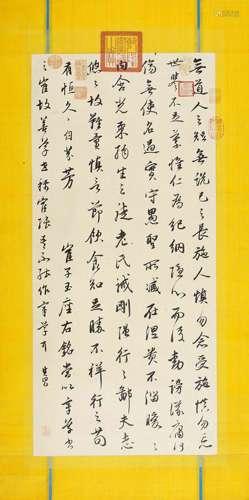 無道人之短無說己之長施人慎勿念受施慎勿忘
世譽不足慕惟仁為紀綱隱心而後動謗議庸何
傷無使名過實守愚聖所臧在涅貴不淄曖曖
內含光柔弱生之徒老氏誡剛強行行鄙夫志
悠悠故難量慎言節飲食知足勝不祥行之苟
有恒久久自芬芳
崔子玉座右銘嘗以章學書
之崔故善學書